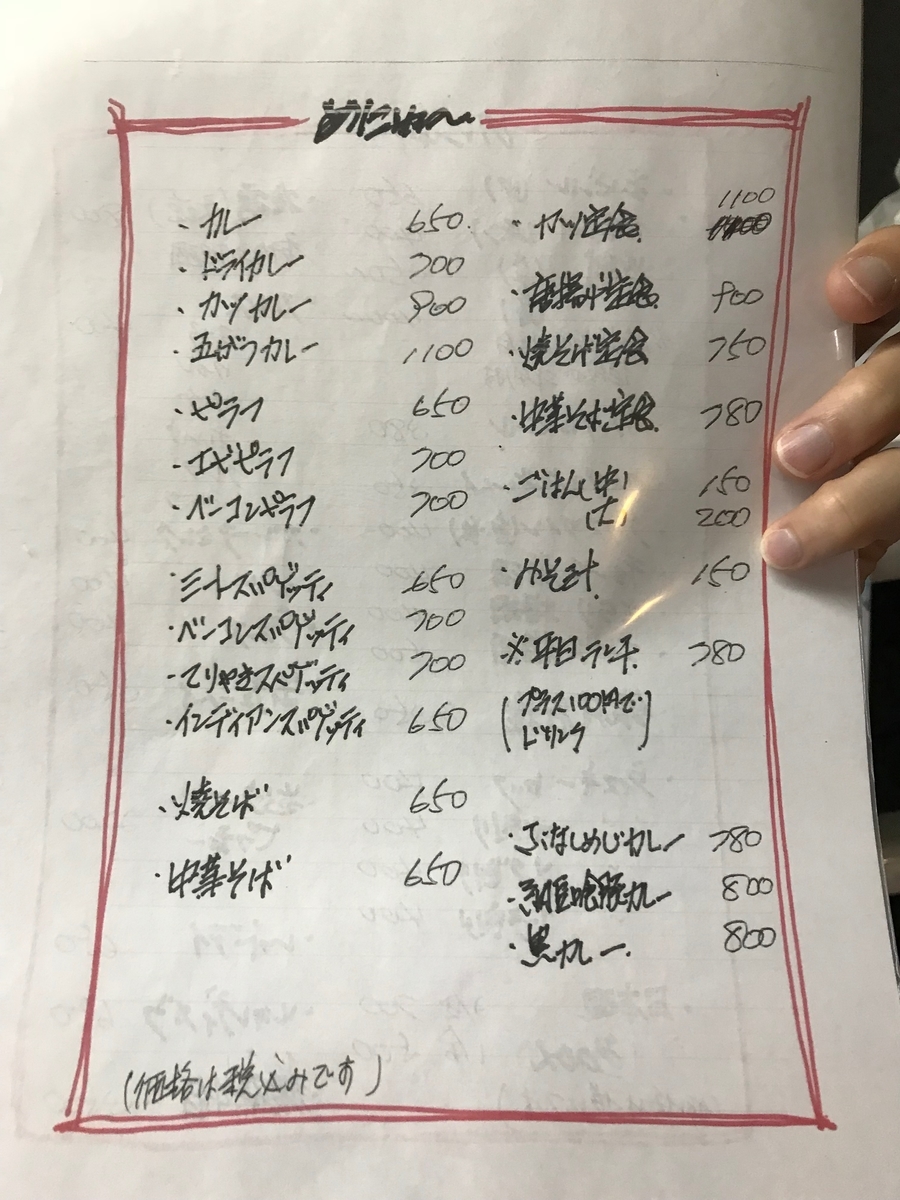 ・カレー 650
・ドライカレー 700
・カツカレー 900
・五がつカレー 1100
・ピラフ 650
・エビピラフ 700
・ベーコンピラフ 700
・ミートスパゲッティ 650
・ベーコンスパゲッティ 700
・てりやきスパゲッティ 700
・インディアンスパゲッティ 650
・焼そば 650
・中華そば 650
・カツ定食 1100
・唐揚げ定食 900
・焼そば定食 750
・中華そば定食 780
・ごはん(中) 150
(大) 200
・みそ汁 150
※平日ランチ 780
(プラス100円で
ドリンク)
・ぶなしめじカレー 780
カレー 800
・黒カレー 800
(価格は税込みです)